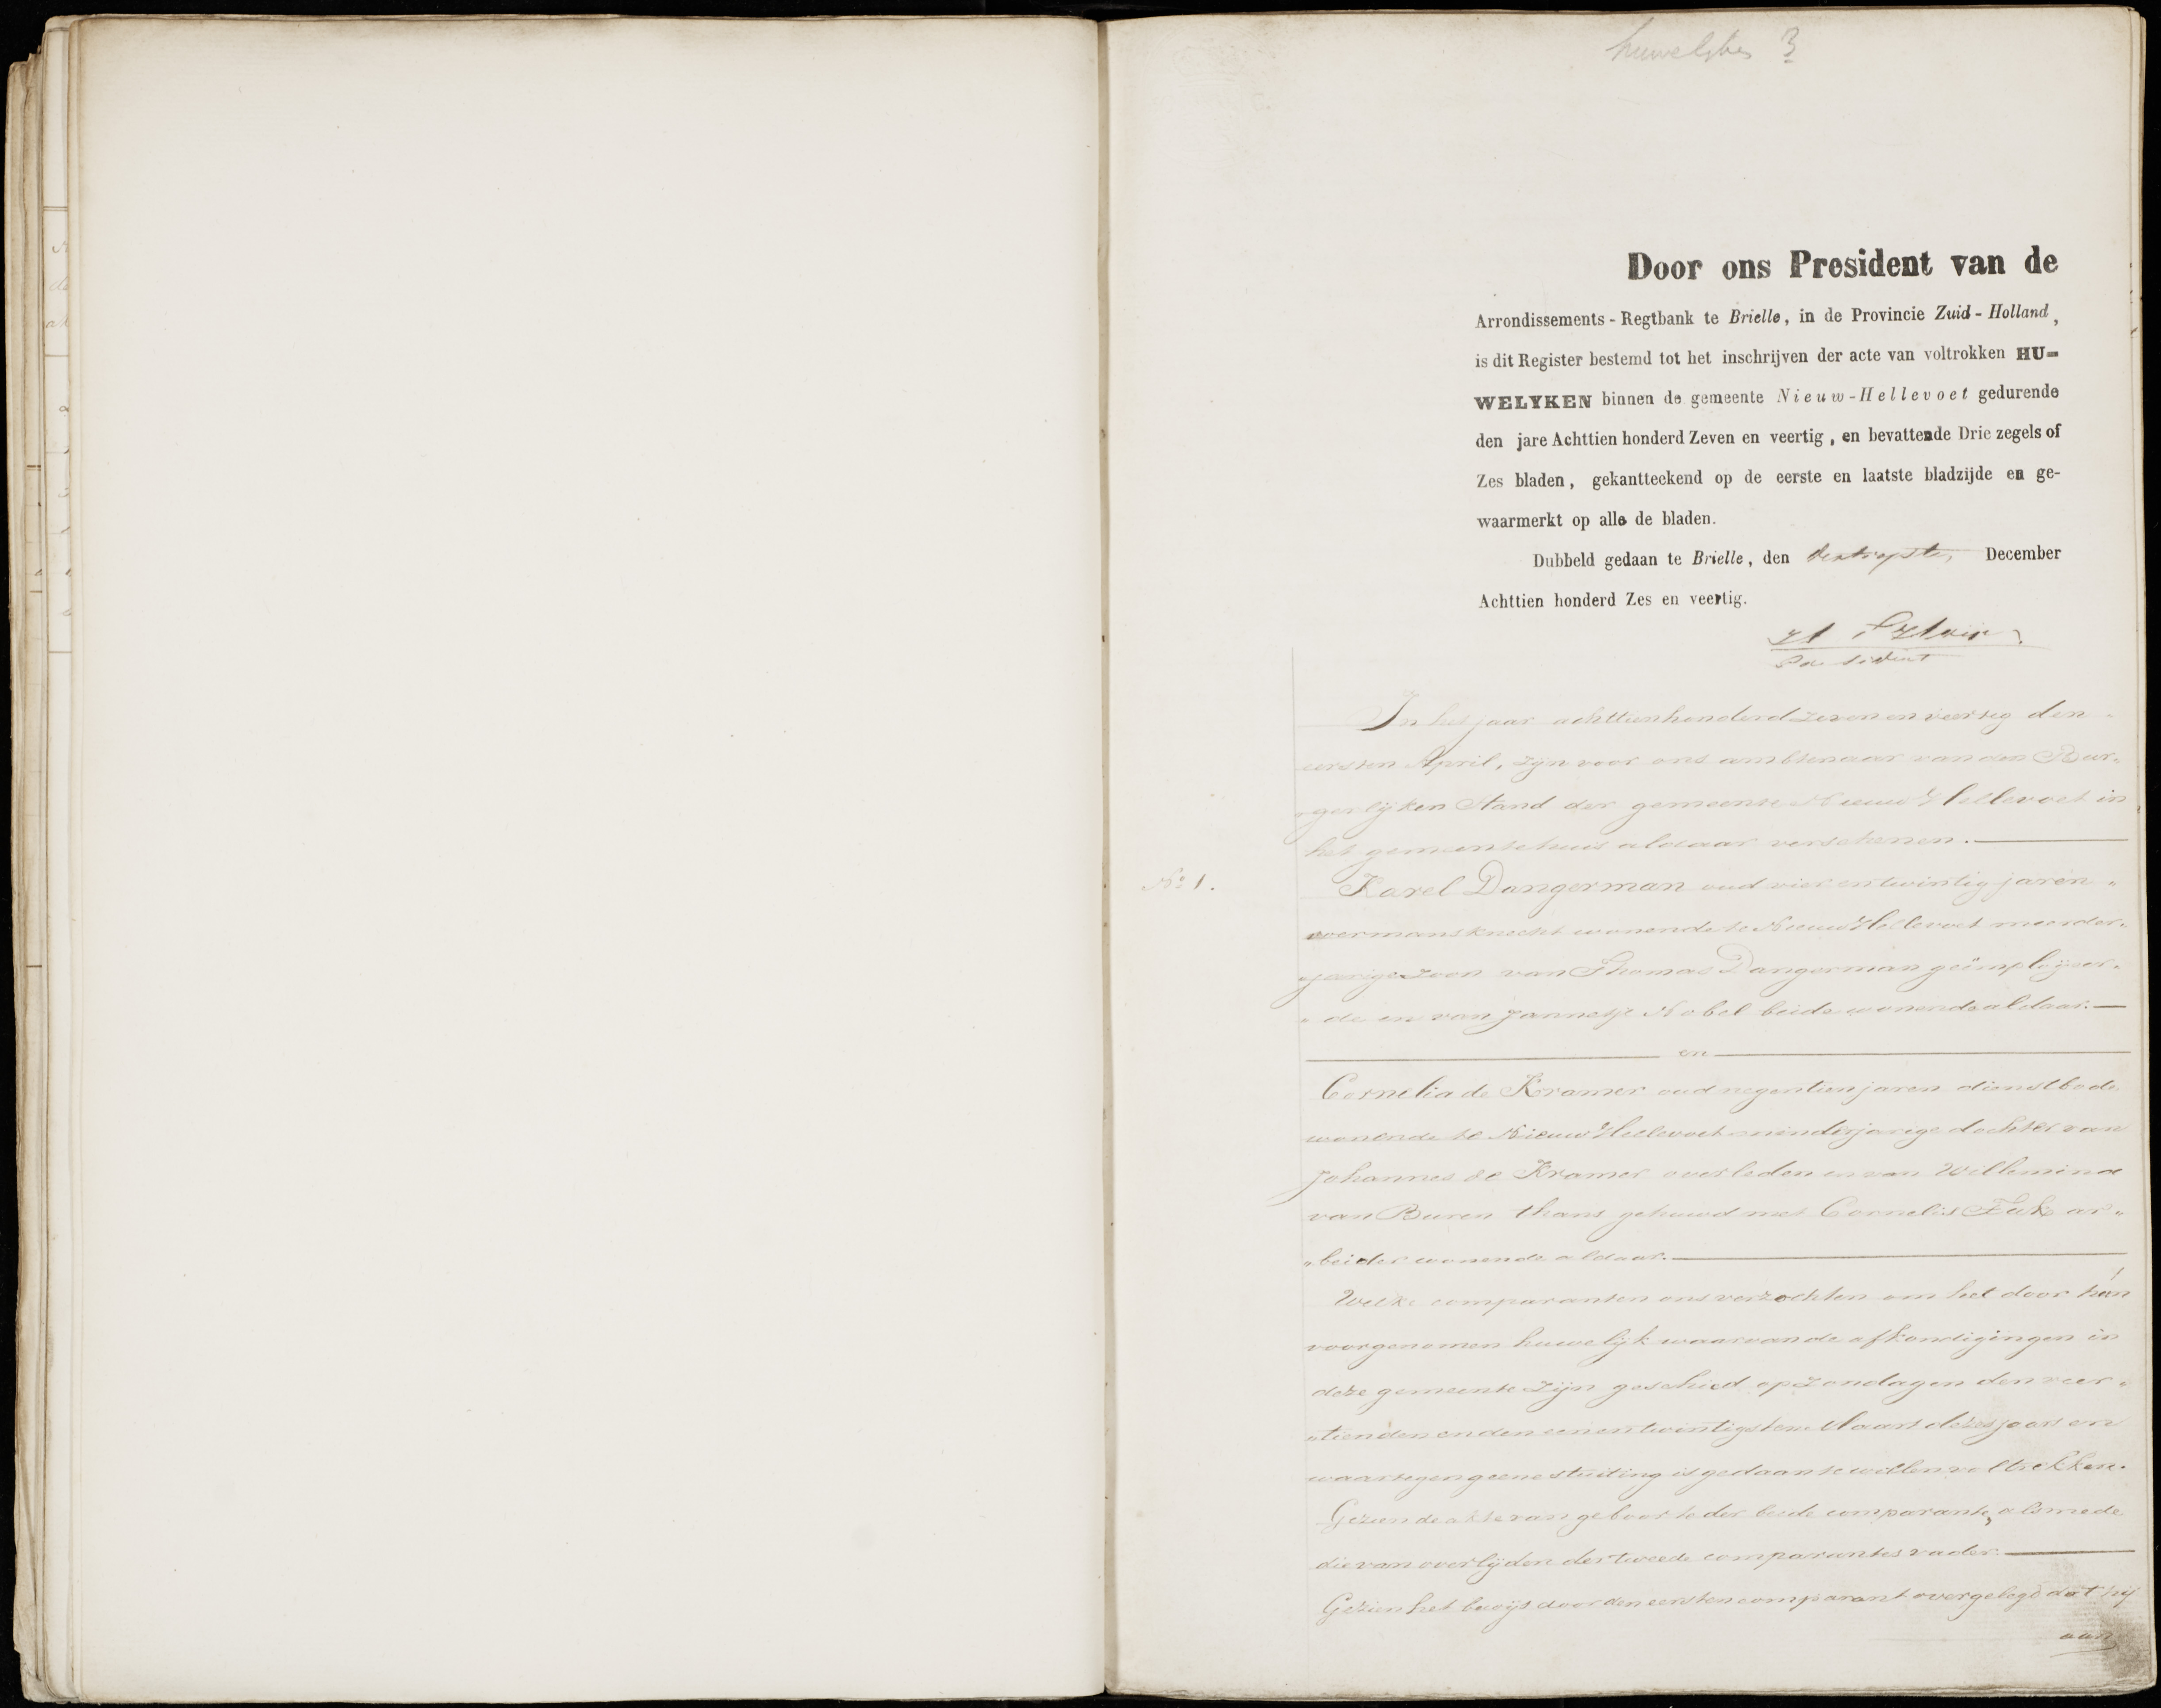 huwelijken 3
Door ons President van de
Arrondissements-Regtbank te Brielle, in de Provincie Zuid-Holland,
is dit Register bestemd tot het inschrijven der acte van voltrokken HU=
WELYKEN binnen de gemeente Nieuw-Hellevoet gedurende
den jare Achttien honderd Zeven en veertig, en bevattende Drie zegels of
Zes bladen, gekantteekend op de eerste en laatste bladzijde en ge-
waarmerkt op alle de bladen.
Dubbeld gedaan te Brielle, den December
Achttien honderd Zes en veertig.
President
In het jaar achttienhonderd zeven en veertig den
eersten April, zyn voor ons ambtenaar van den Bur„
„gerlyken Stand der gemeente Nieuw Hellevoet in
het gemeentehuis aldaar verschenen.
No 1.
Karel Dangerman oud vier en twintig jaren
voermansknecht wonende te Nieuw Hellevoet meerder„
„jarige zoon van Thomas Dangerman geëmployeer„
„de en van Jannetje Nobel beide wonende aldaar.
en
Cornelia de Kramer oud negentien jaren dienstbode
wonende te Nieuw Hellevoet minderjarige dochter van
Johannes de Kramer overleden en van Willemina
van Buren thans gehuwd met Cornelis ar„
„beider wonende aldaar.
Welke comparanten ons verzochten om het door hun
voorgenomen huwelyk waarvan de afkondigingen in
deze gemeente zyn geschied op zondagen den veer„
„tienden en den eenentwintigsten Maart dezes jaars en
waartegen geene stuiting is gedaan te willen voltrekken.
Gezien de akte van geboorte der beide comparante, alsmede
die van overlyden der tweede comparantes vader.
Gezien het bewys door den eersten comparant overgelegd dat hy
aan